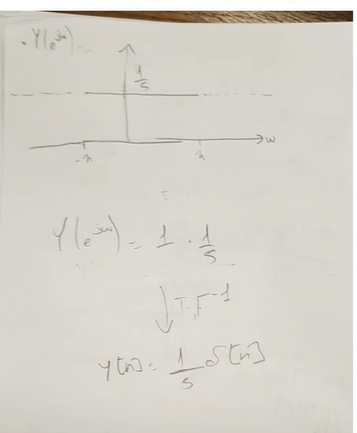 . Y(e^jω) =
1/5
-π π ω
Y(e^jω) = 1 · 1/5
T.F^-1
y[n] = 1/5 δ[n]